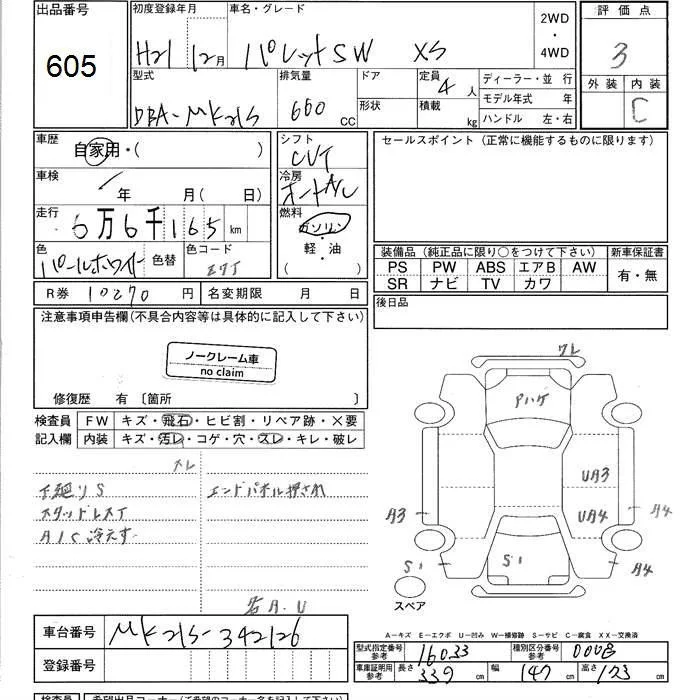 出品番号
605
初度登録年月
H21 12月
車名・グレード
パレットSW XS
2WD
・
4WD
評価点
3
外装 内装
C
型式
DBA-MK21S
排気量
660 CC
ドア
形状
定員
4人
積載
kg
ディーラー・並行
モデル年式 年
ハンドル 左・右
車歴
自家用・( )
車検
年 月( 日)
走行
6万6千165 km
色
パールホワイト
色替
色コード
シフト
CVT
冷房
オートA/C
燃料
ガソリン
・
軽・油
( )
セールスポイント(正常に機能するものに限ります)
装備品(純正品に限り○をつけて下さい)
新車保証書
PS PW ABS エアB AW
SR ナビ TV カワ
有・無
後日品
R券 10270 円
名変期限 月 日
注意事項申告欄(不具合内容等は具体的に記入して下さい)
ノークレーム車
no claim
修復歴 有〔箇所 〕
検査員 FW キズ・飛石・ヒビ割・リペア跡・×要
記入欄 内装 キズ・汚レ・コゲ・穴・スレ・キレ・破レ
スレ
下廻りS
エンドパネル押され
スタッドレスT
A/C冷えず
各A.U
ワレ
Pハゲ
UA3
UA4
A3
A4
S1
S1
A4
スペア
A-キズ E-エクボ U-凹み W-補修跡 S-サビ C-腐食 XX-交換済
車台番号 MK21S-342126
登録番号
型式指定番号
参考
16033
種別区分番号
参考
車庫証明用
参考
長さ 339
幅 147
高さ 173
検査員
希望出品コーナー(ご希望のコーナー名を記入して下さい)